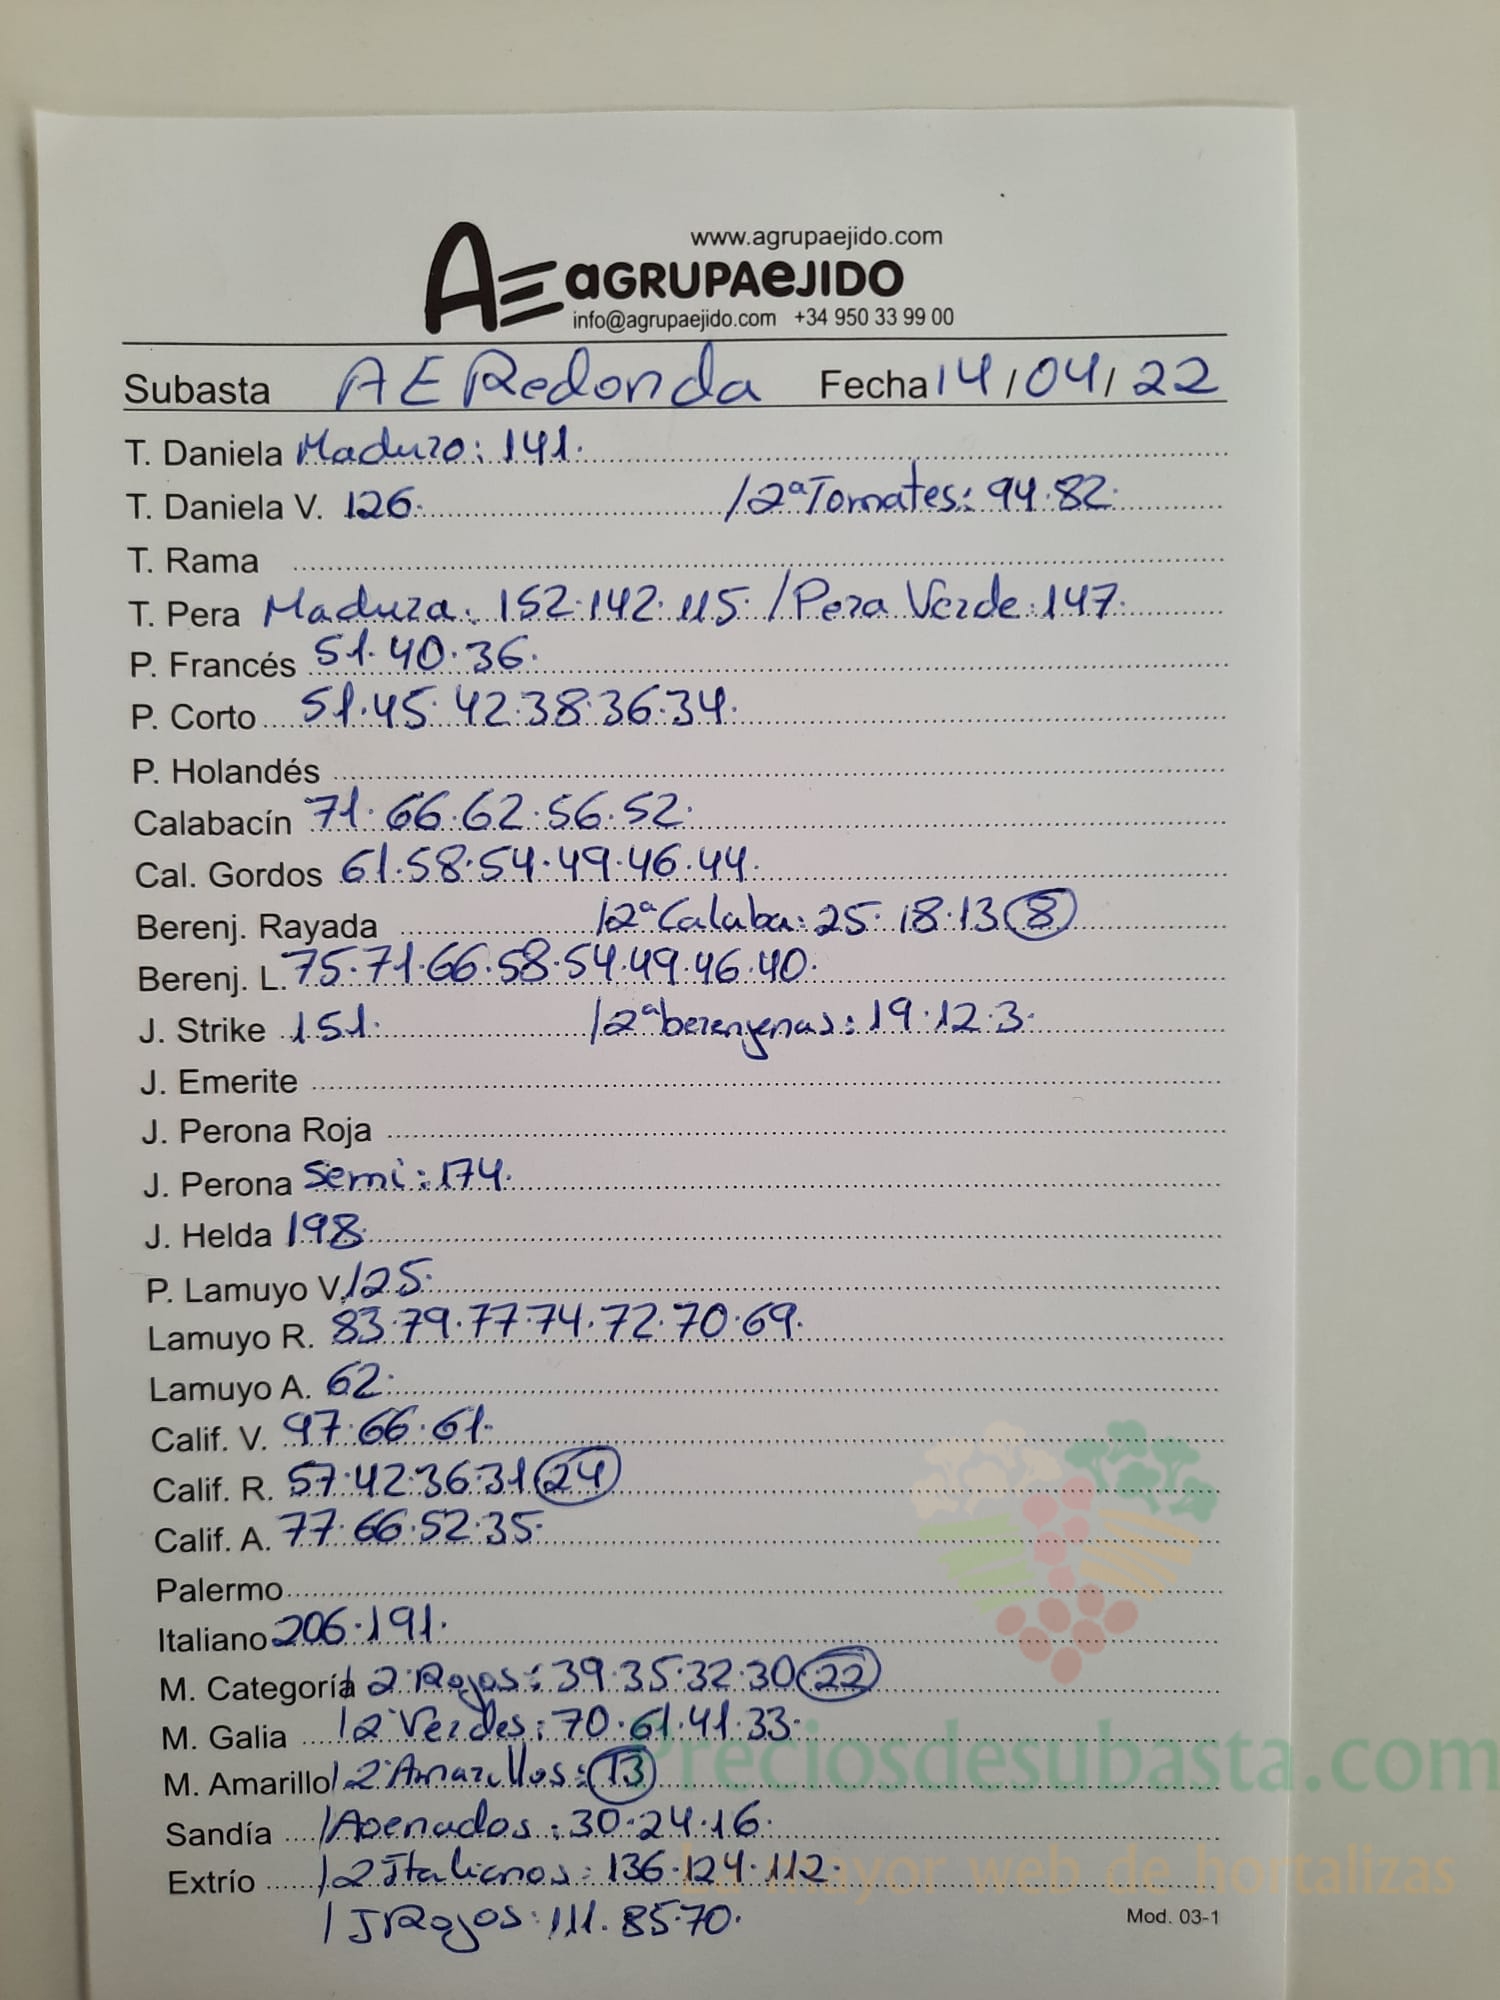 www.agrupaejido.com
AE AGRUPAEJIDO
info@agrupaejido.com +34 950 33 99 00
Subasta AE Redonda Fecha 14/04/22
T. Daniela Maduro: 141.
T. Daniela V. 126. /2ª Tomates: 94.82.
T. Rama
T. Pera Madura: 152.142.115. /Pera Verde: 147.
P. Francés 51.40.36.
P. Corto 51.45.42.38.36.34.
P. Holandés
Calabacín 71.66.62.56.52.
Cal. Gordos 61.58.54.49.46.44.
Berenj. Rayada /2ª Calaba: 25.18.13 (8)
Berenj. L. 75.71.66.58.54.49.46.40.
J. Strike 151. /2ª berenjenas: 19.12.3.
J. Emerite
J. Perona Roja
J. Perona Semi: 174.
J. Helda 198.
P. Lamuyo V. 125.
Lamuyo R. 83.79.77.74.72.70.69.
Lamuyo A. 62.
Calif. V. 97.66.61.
Calif. R. 57.42.36.31 (24)
Calif. A. 77.66.52.35.
Palermo
Italiano 206.191.
M. Categoría / 2ª Rojos: 39.35.32.30 (22)
M. Galia /2ª Verdes: 70.61.41.33.
M. Amarillo /2ª Amarillos: (13)
Preciosdesubasta.com
Sandía /Asenados: 30.24.16.
Extrío /2 Italianos: 136.124.112.
La mayor web de hortalizas
/J Rojos: 111.85.70.
Mod. 03-1